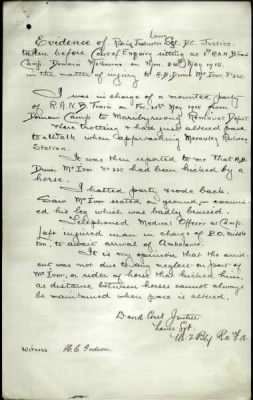 Lance
Evidence of Sgt. D.C. Justice.
taken before Court of Enquiry sitting at 1st R.A.N. Bridging
Camp. Domain Melbourne on Mon. 24th May 1915.
in the matter of injury to A.B. Driver McIvor No 225.
I was in charge of a mounted party
of R.A.N.B. Train on Fri. 21st May 1915 from
Domain Camp to Maribyrnong Remount Depot.
Were trotting & had just altered pace
to a Walk when approaching Macaulay Railway
Station.
It was then reported to me that A.B.
Driver McIvor No 225 had been kicked by a
horse.
I halted party & rode back.
Saw McIvor seated on ground, & exam-
ined his leg which was badly bruised.
Telephoned Medical Officer at Camp.
Left injured man in charge of P.O. Middle
ton, to await arrival of Ambulance.
It is my opinion that the accid-
ent was not due to any neglect on part of
McIvor, or rider of horse that kicked him,
as distance between horses cannot always
be maintained when pace is altered.
David Cecil Justice
Lance Sgt.
Witness